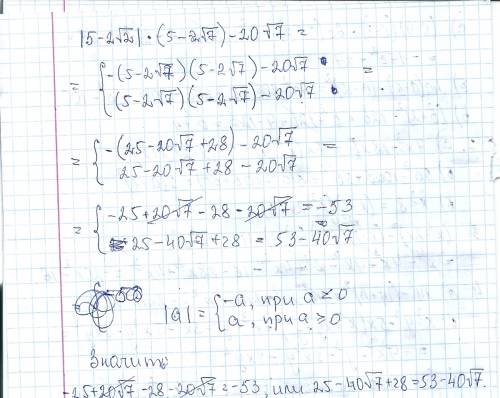 |5-2√2|·(5-2√7)-20√7 =
= { -(5-2√7)(5-2√7)-20√7 =
(5-2√7)(5-2√7)-20√7
= { -(25-20√7+28)-20√7 =
25-20√7+28-20√7
= { -25+20√7-28-20√7 = -53
25-40√7+28 = 53-40√7
|a| = { -a, при a<0
a, при a≥0
Значить
-25+20√7-28-20√7=-53, или 25-40√7+28=53-40√7.